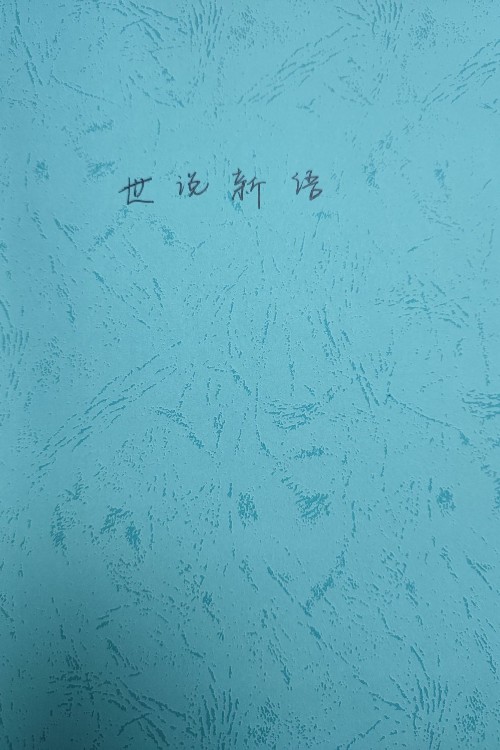 世说新语